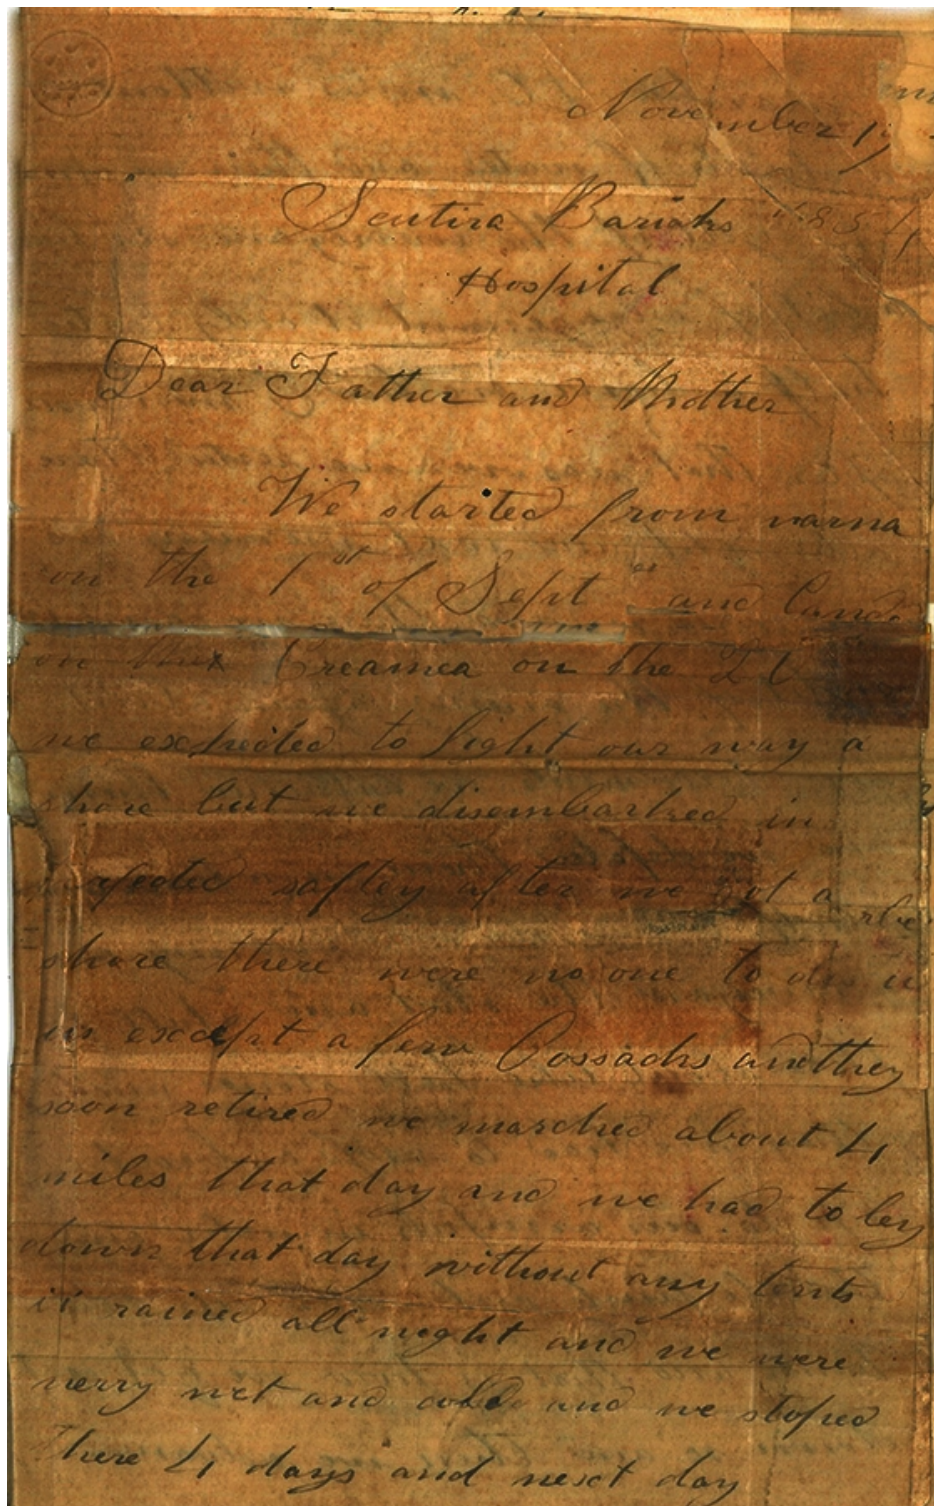 November 19
Scutira Bariaks 1854
Hospital
Dear Father and Mother
We started from varna
on the 1st of Sept and
on the Creamea on the
we expected to fight our way a
shore but we disembarked in
saftey after we got a
shore there were no one to
us except a few Cossacks and they
soon retired we marched about 4
miles that day and we had to ley
down that day without any tents
it rained all night and we were
verry wet and cold and we stoped
there 4 days and next day